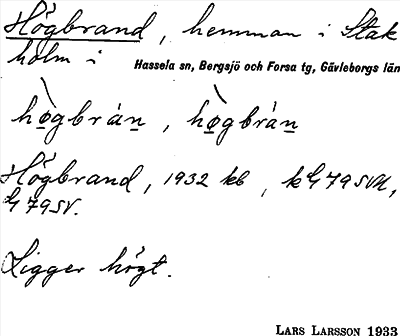 Högbrand, hemman i Stak
holm i Hassela sn, Bergsjö och Forsa tg, Gävleborgs län
hògbràn, hògbràn
Högbrand, 1932 kb, kG79SVU,
G79SV.
Ligger högt.
LARS LARSSON 1933